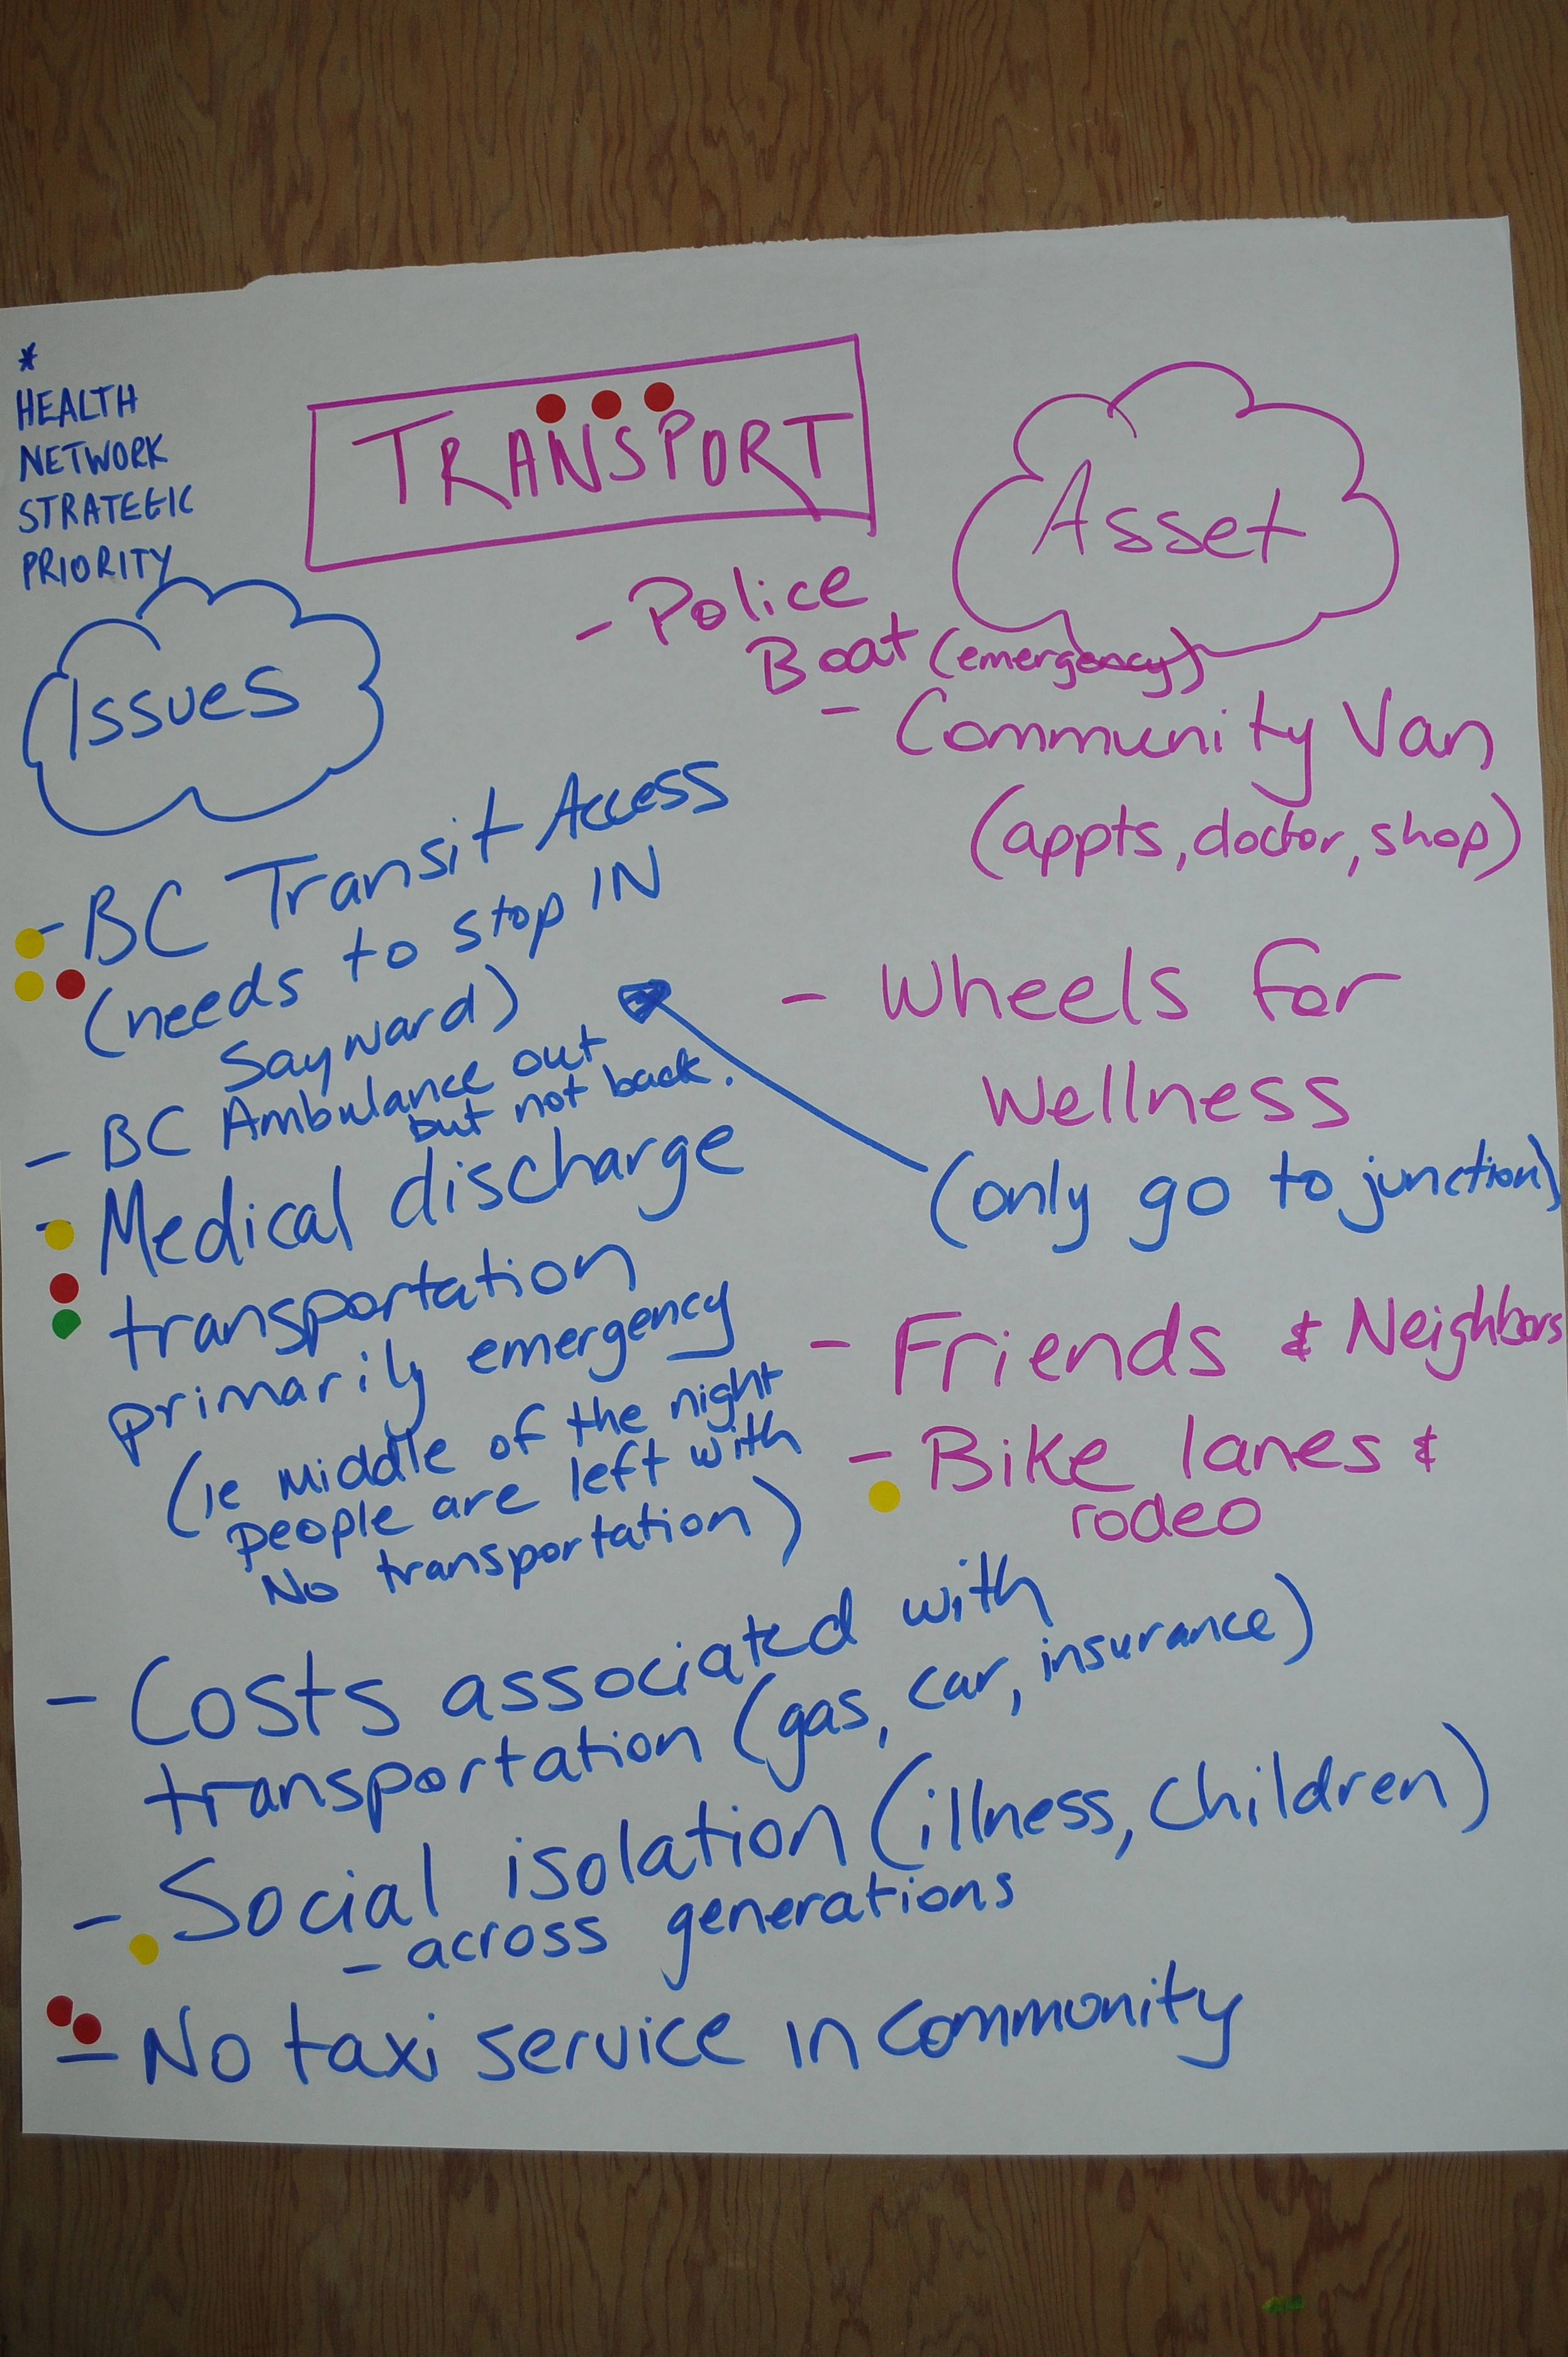 *
HEALTH
NETWORK
STRATEGIC
PRIORITY
TRANSPORT
Asset
- Police
Boat (emergency)
- Community Van
(appts, doctor, shop)
- Wheels for
Wellness
(only go to junction)
- Friends & Neighbors
- Bike lanes &
rodeo
Issues
- BC Transit Access
(needs to stop IN
Sayward)
- BC Ambulance out
but not back.
- Medical discharge
transportation
primarily emergency
(ie middle of the night
people are left with
No transportation)
- Costs associated with
transportation (gas, car, insurance)
- Social isolation (illness, children)
- across generations
- No taxi service in community